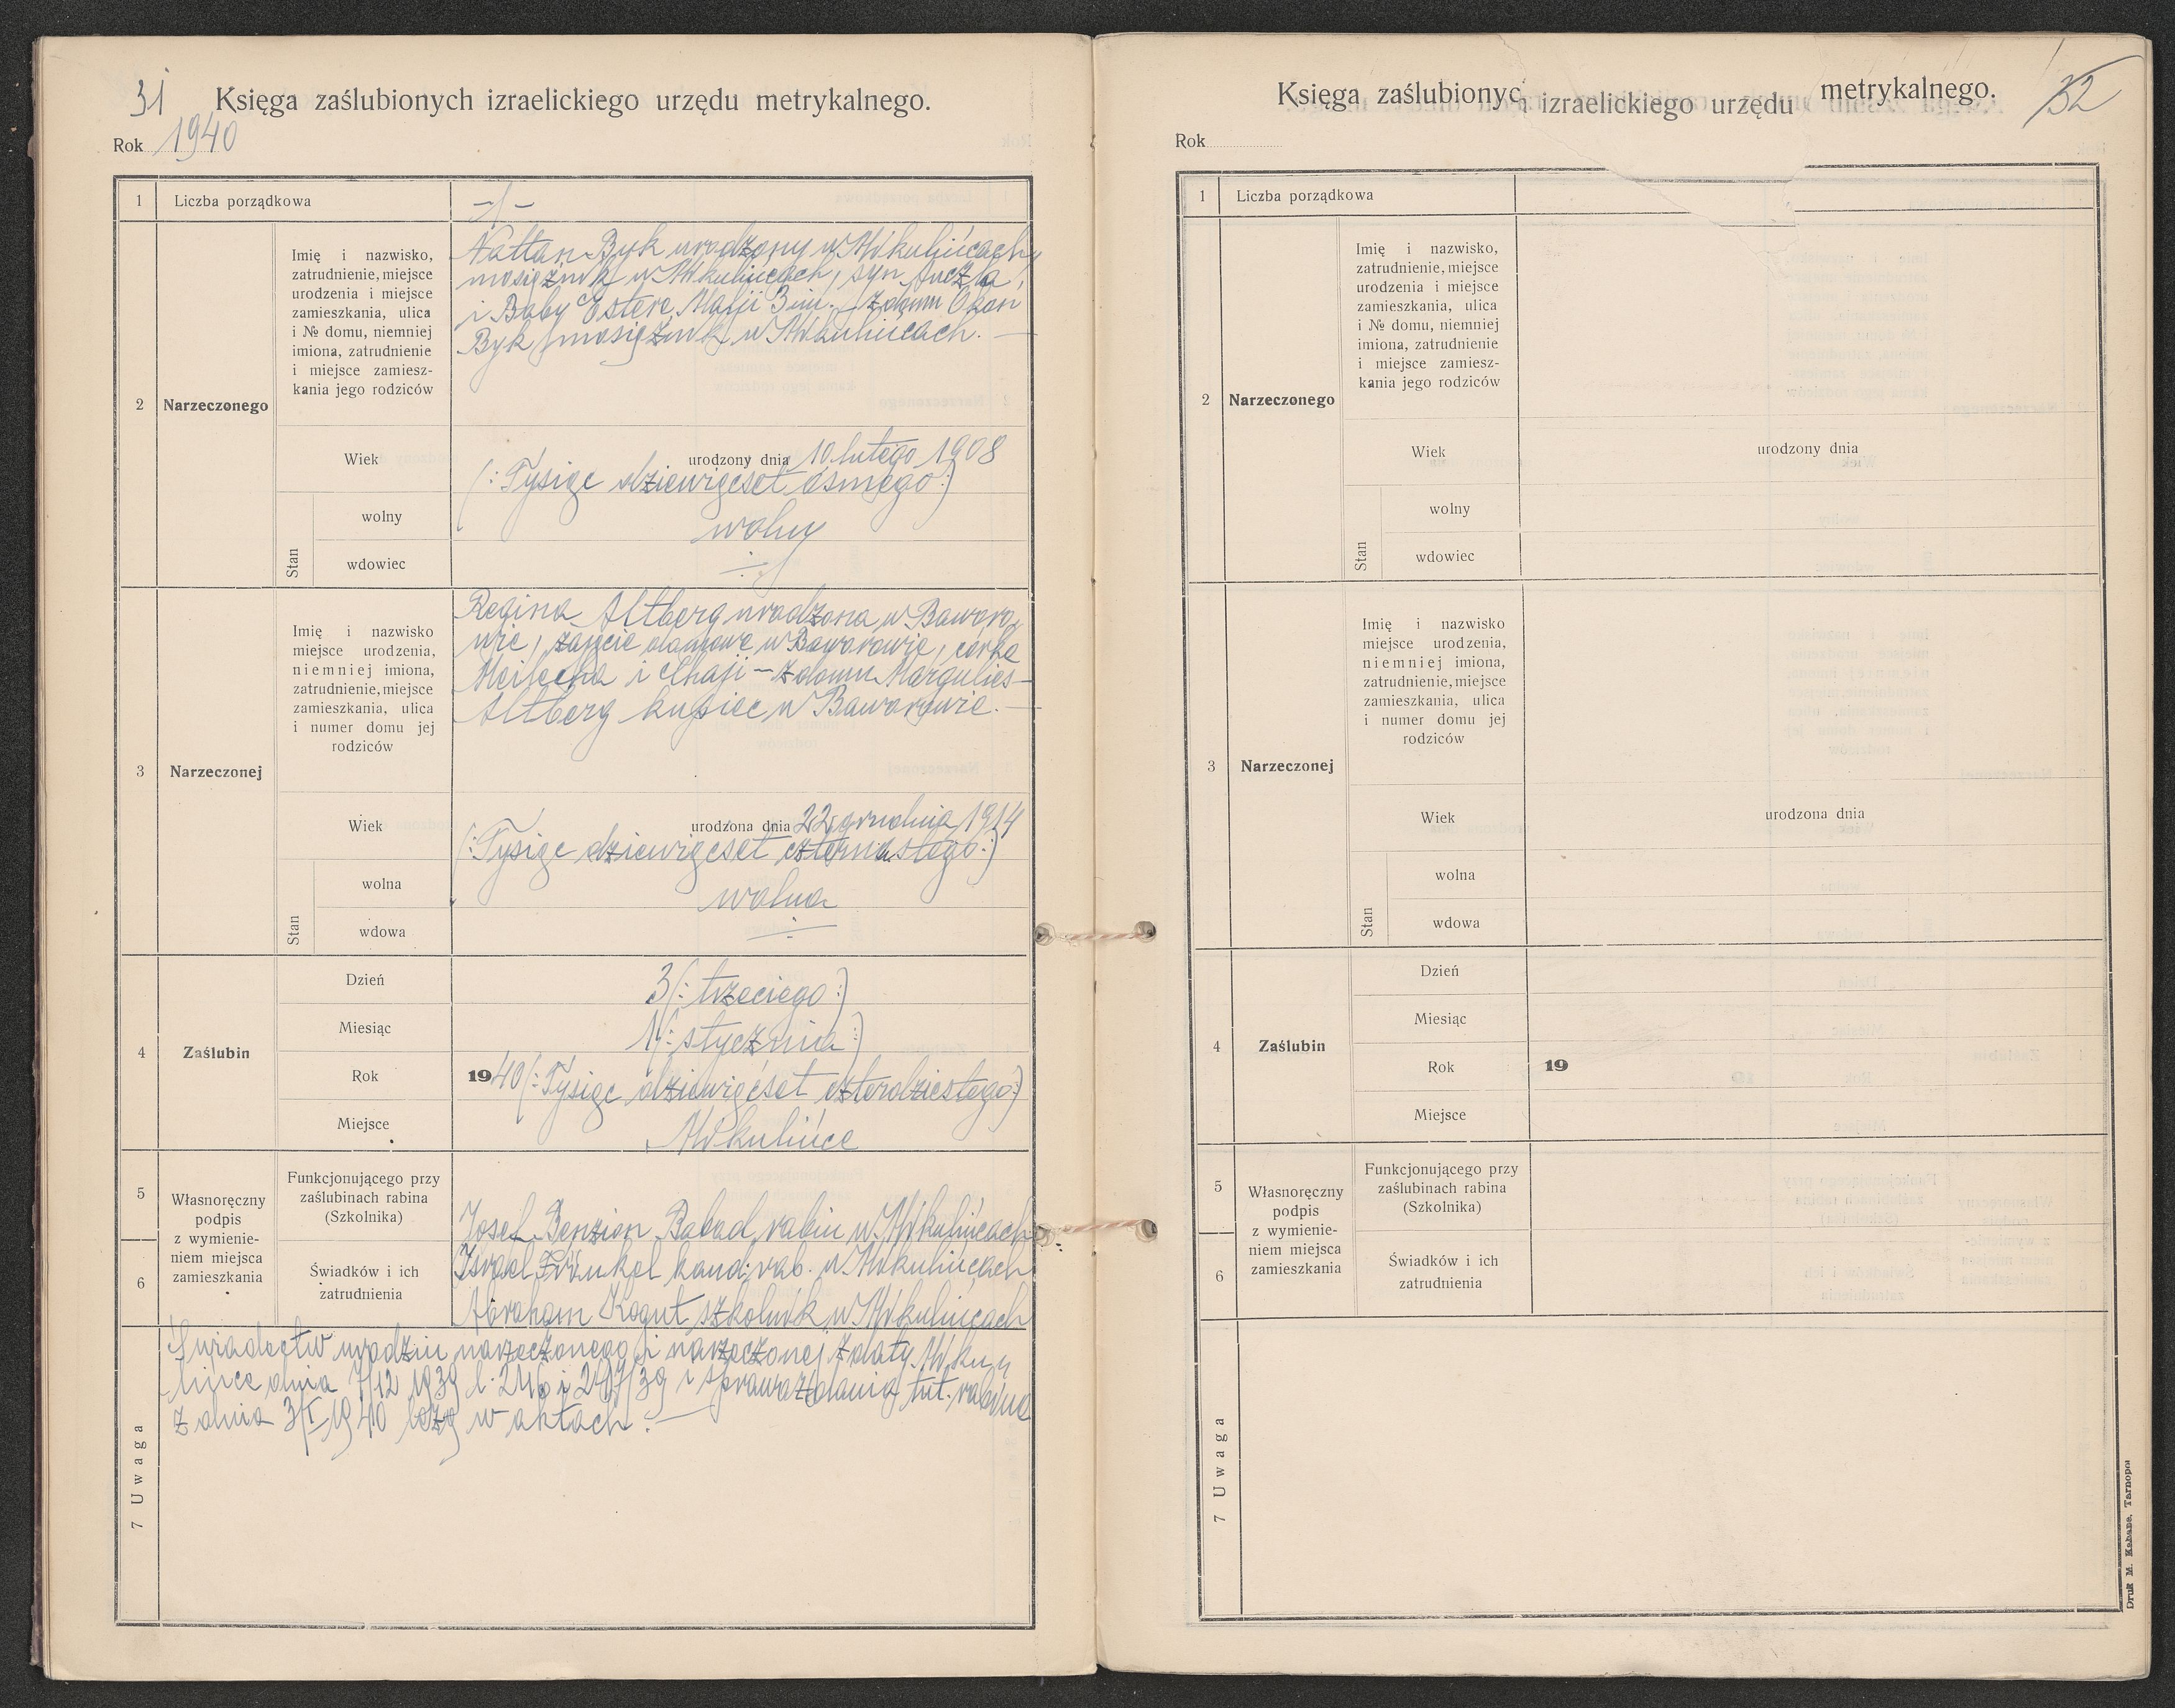 31
Księga zaślubionych izraelickiego urzędu metrykalnego.
Rok 1940
1 Liczba porządkowa
-1-
2 Narzeczonego
Imię i nazwisko,
zatrudnienie, miejsce
urodzenia i miejsce
zamieszkania, ulica
i № domu, niemniej
imiona, zatrudnienie
i miejsce zamiesz-
kania jego rodziców
Nattan Byk urodzony w Mikulińcach,
mosiężnik w Mikulińcach, syn
i Baby Estere z domu Okon
Byk mosiężnik w Mikulińcach. —
Wiek urodzony dnia 10 lutego 1908
(: Tysiąc dziewięćset ósmego :)
Stan
wolny wolny
wdowiec
3 Narzeczonej
Imię i nazwisko
miejsce urodzenia,
niemniej imiona,
zatrudnienie, miejsce
zamieszkania, ulica
i numer domu jej
rodziców
Regina Altberg urodzona w Baworo-
wie, zajęcie domowe w Baworowie, córka
Meilecha i Chaji – z domu Margulies –
Altberg kupiec w Baworowie. —
Wiek urodzona dnia 22 grudnia 1914
(: Tysiąc dziewięćset czternastego :)
Stan
wolna wolna
wdowa
4 Zaślubin
Dzień 3 (: trzeciego :)
Miesiąc 1 (: stycznia :)
Rok 1940 (: Tysiąc dziewięćset czterdziestego :)
Miejsce Mikulińce
5
6
Własnoręczny
podpis
z wymienie-
niem miejsca
zamieszkania
Funkcjonującego przy
zaślubinach rabina
(Szkolnika)
Josef Benzion Babad rabin w Mikulińcach
Świadków i ich
zatrudnienia
Izrael Fränkel kand. rab. w Mikulińcach
Abraham Kogut szkolnik w Mikulińcach
7 Uwaga
Świadectw urodzin narzeczonego i narzeczonej z daty Miku-
lińce dnia 7/12 1939 l: 246 i 247/39 i sprawozdania tut. rabina
z dnia 3/I 1940 leżą w aktach. —
Księga zaślubionyc izraelickiego urzędu metrykalnego.
32
Rok
1 Liczba porządkowa
2 Narzeczonego
Imię i nazwisko,
zatrudnienie, miejsce
urodzenia i miejsce
zamieszkania, ulica
i № domu, niemniej
imiona, zatrudnienie
i miejsce zamiesz-
kania jego rodziców
Wiek urodzony dnia
Stan
wolny
wdowiec
3 Narzeczonej
Imię i nazwisko
miejsce urodzenia,
niemniej imiona,
zatrudnienie, miejsce
zamieszkania, ulica
i numer domu jej
rodziców
Wiek urodzona dnia
Stan
wolna
wdowa
4 Zaślubin
Dzień
Miesiąc
Rok 19
Miejsce
5
6
Własnoręczny
podpis
z wymienie-
niem miejsca
zamieszkania
Funkcjonującego przy
zaślubinach rabina
(Szkolnika)
Świadków i ich
zatrudnienia
7 Uwaga
Druk M. Kahane, Tarnopol